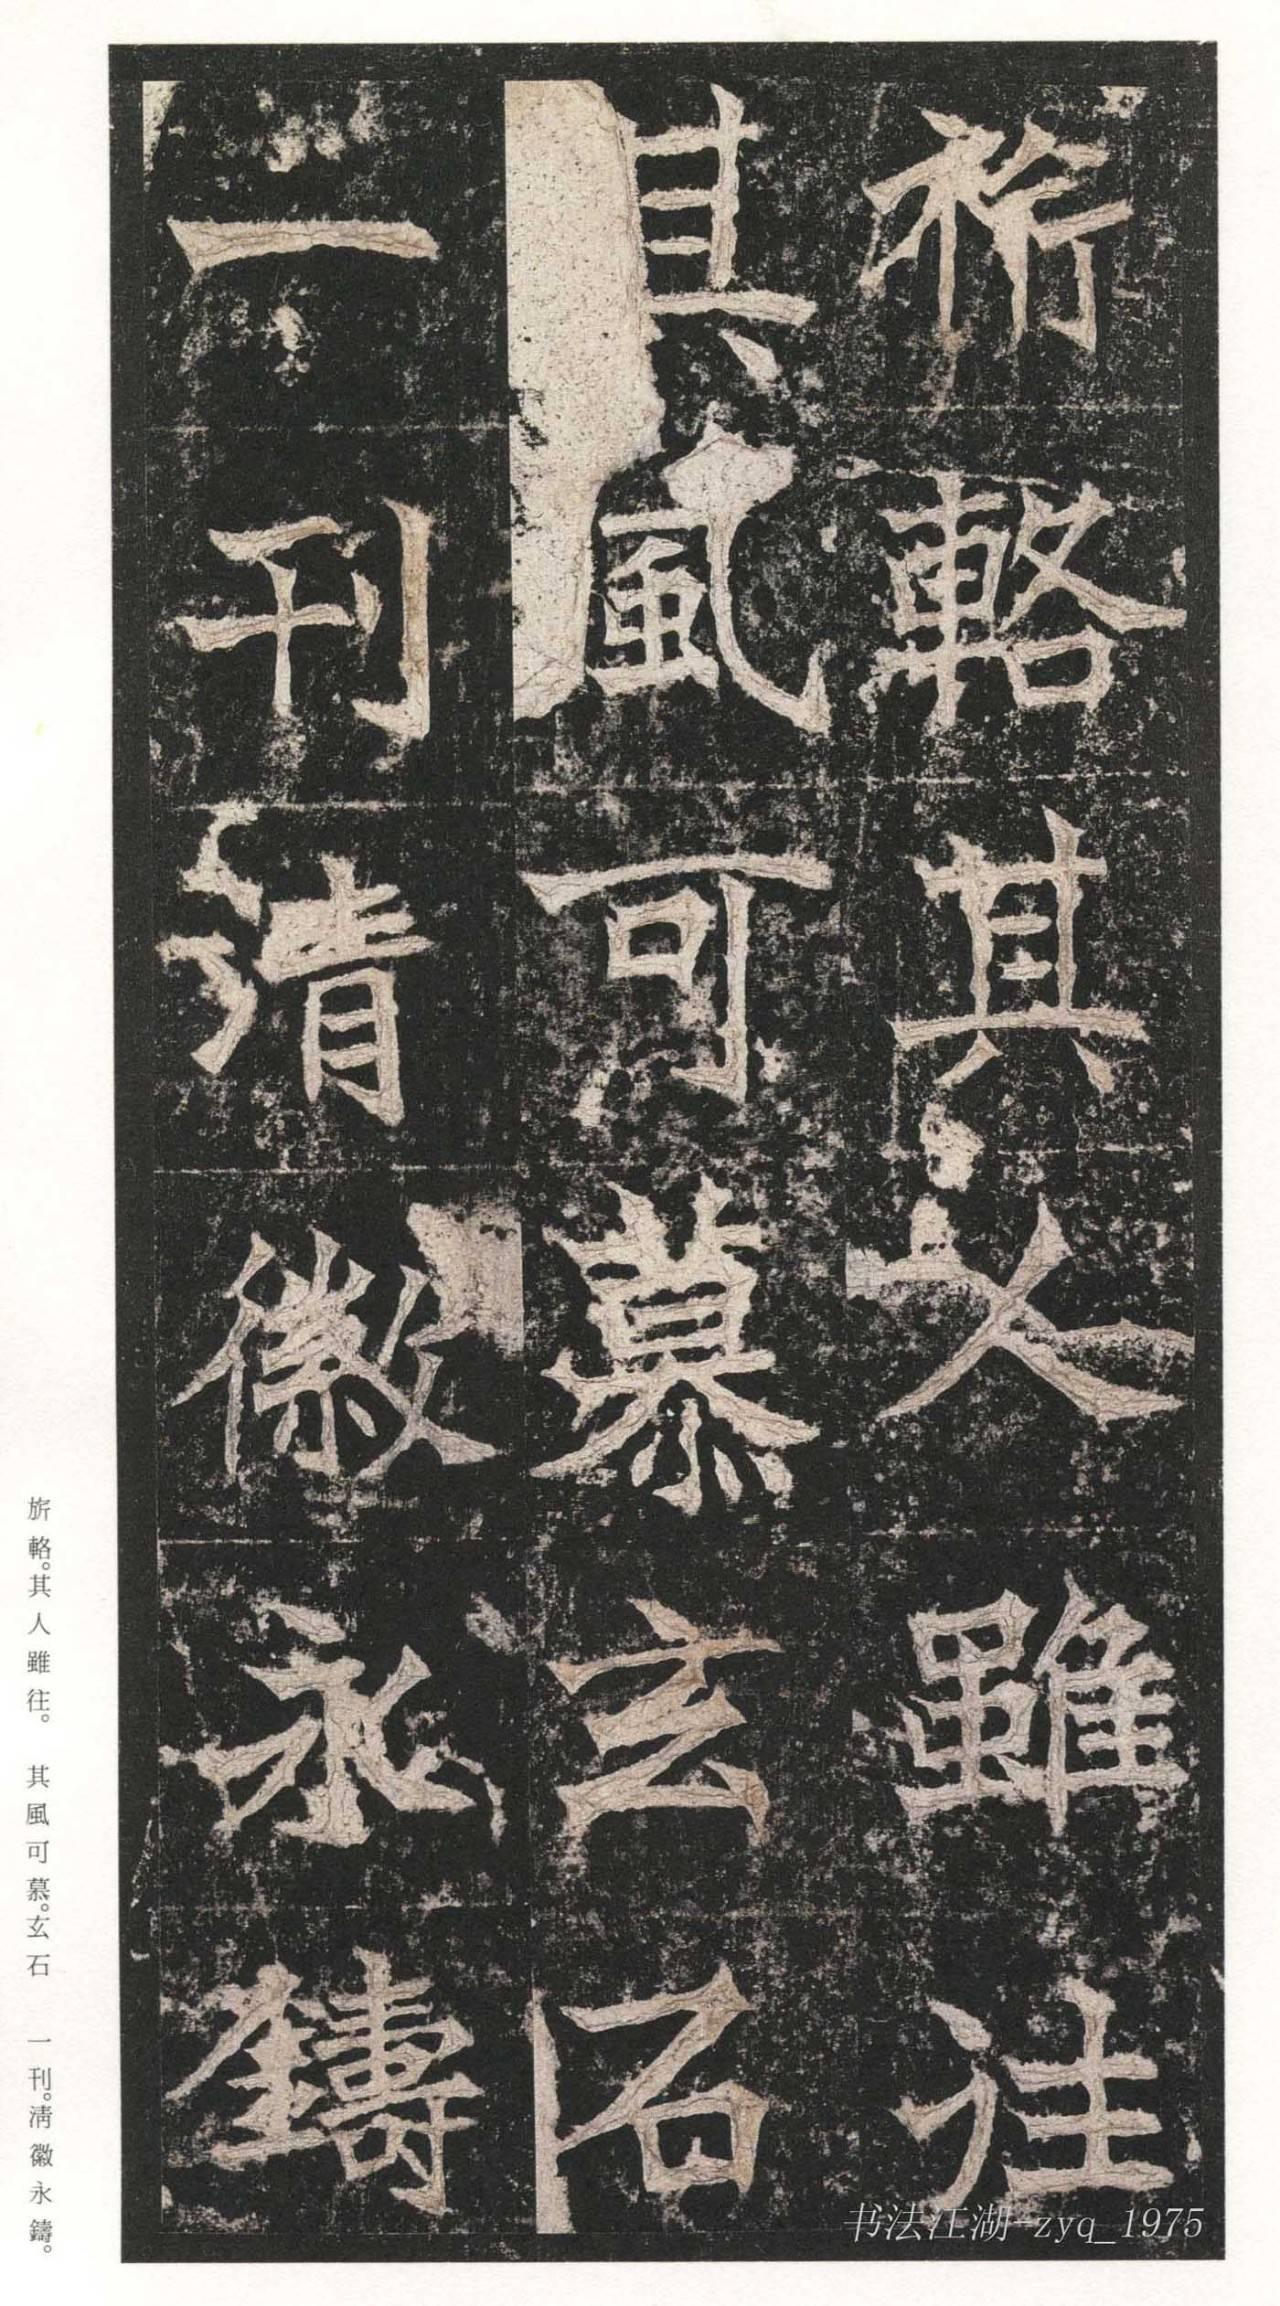 旂輅其人雖往
其風可慕玄石
一刊清徽永鑄
旂輅。其人雖往。 其風可慕。玄石 一刊。清徽永鑄。
书法江湖-zyq_1975